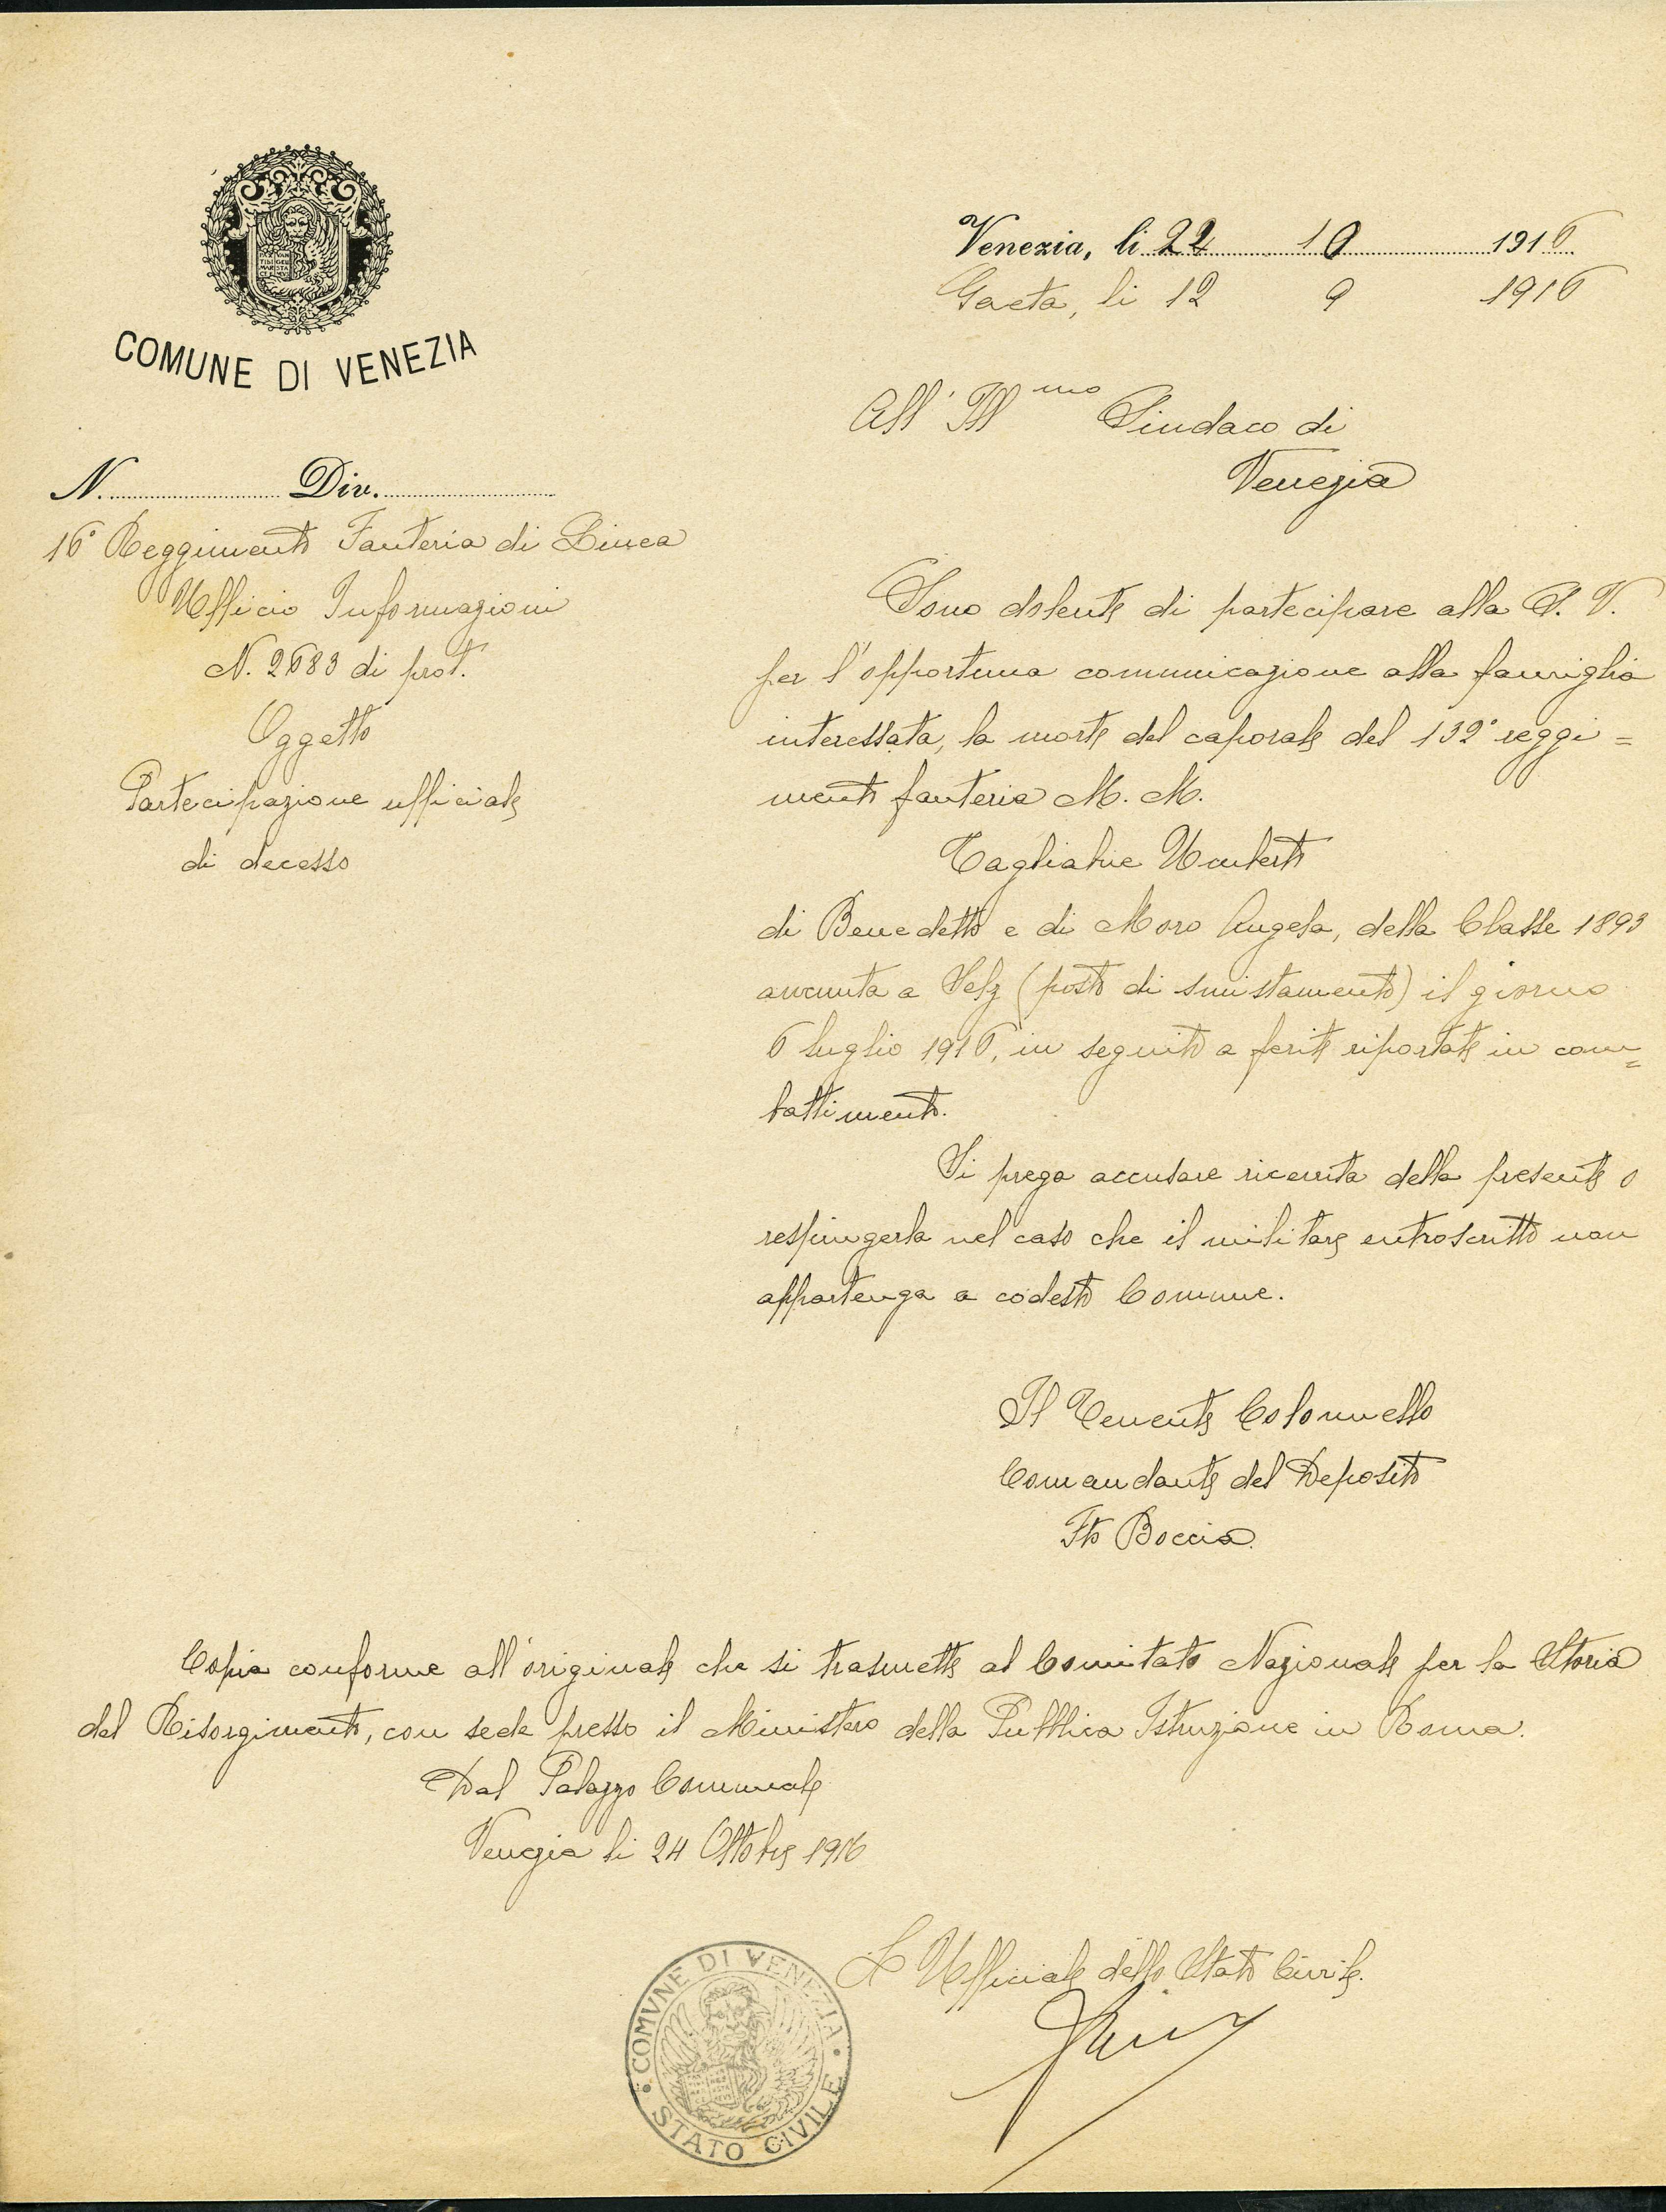 COMUNE DI VENEZIA
N. Div.
16° Reggimento Fanteria di Linea
Ufficio Informazioni
N. 2683 di prot.
Oggetto
Partecipazione ufficiale
di decesso
Venezia, li 24 10 1916
Gaeta, li 12 9 1916
All' Ill mo Sindaco di
Venezia
Sono dolente di partecipare alla S. V.
per l'opportuna comunicazione alla famiglia
interessata, la morte del caporale del 132° reggi=
mento fanteria M. M.
Umberto
di Benedetto e di Moro Angela, della Classe 1893
avvenuta a Selz (posto di smistamento) il giorno
6 luglio 1916, in seguito a ferite riportate in com=
battimento.
Si prega accusare ricevuta della presente o
respingerla nel caso che il militare entroscritto non
appartenga a codesto Comune.
Il Tenente Colonnello
Comandante del Deposito
Fto Boccia
Copia conforme all'originale che si trasmette al Comitato Nazionale per la Storia
del Risorgimento, con sede presso il Ministero della Pubblica Istruzione in Roma.
Dal Palazzo Comunale
Venezia li 24 Ottobre 1916
L'Ufficiale dello Stato Civile.
COMVNE DI VENEZIA
STATO CIVILE